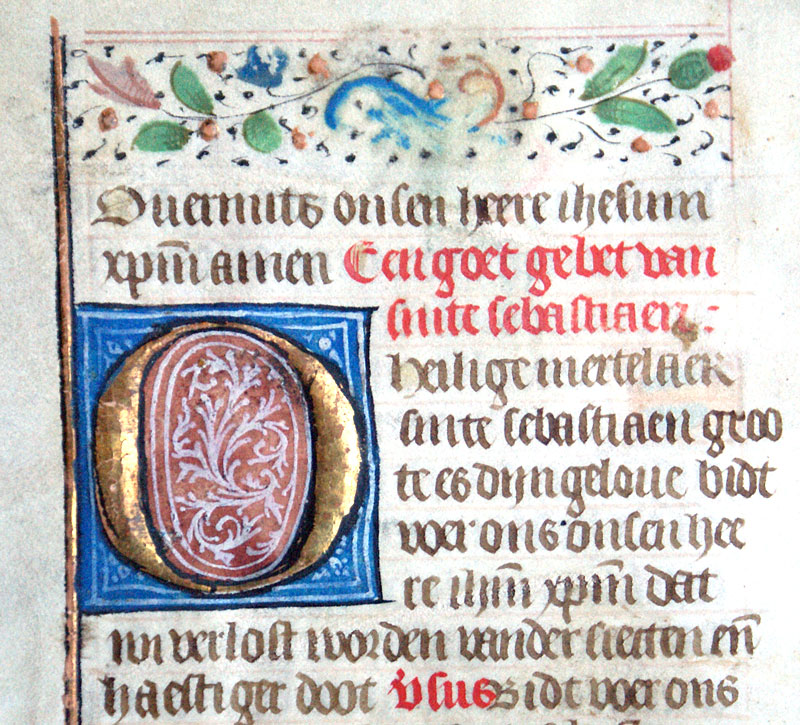 Ouermits onsen heere ihesum
xp̄m amen Een goet gebet van
sinte sebastiaen:
O heilige mertelaer
sinte sebastiaen groo
te es dijn geloue bidt
voer ons onsen hee
re ih̄m xp̄m dat
wi verlost worden vander siecten en̄
haestiger doot v̄sus Bidt voer ons